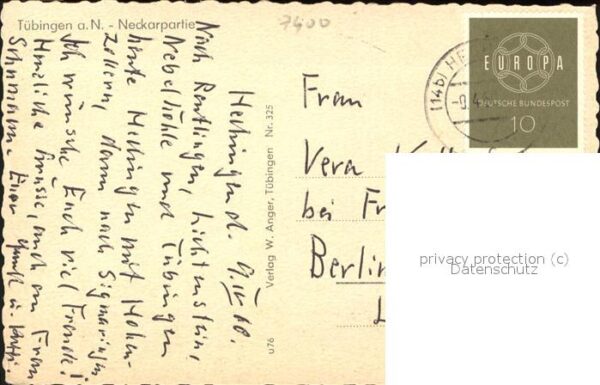 Tübingen a. N. - Neckarpartie
7400
Hechingen d. 9. IV 60.
Nach Reutlingen, Lichtenstein,
Nebelhöhle und Tübingen
heute Hechingen mit Hohen-
zollern, dann nach Sigmaringen
Ich wünsche Euch viel Freude!
Herzliche Grüsse, auch an Frau
Schumann Euer
Verlag W. Anger, Tübingen Nr. 325
u76
(14b) HE
-9.4
EUROPA
DEUTSCHE BUNDESPOST
10
Frau
Vera
bei Fr
Berlin
privacy protection (c)
Datenschutz